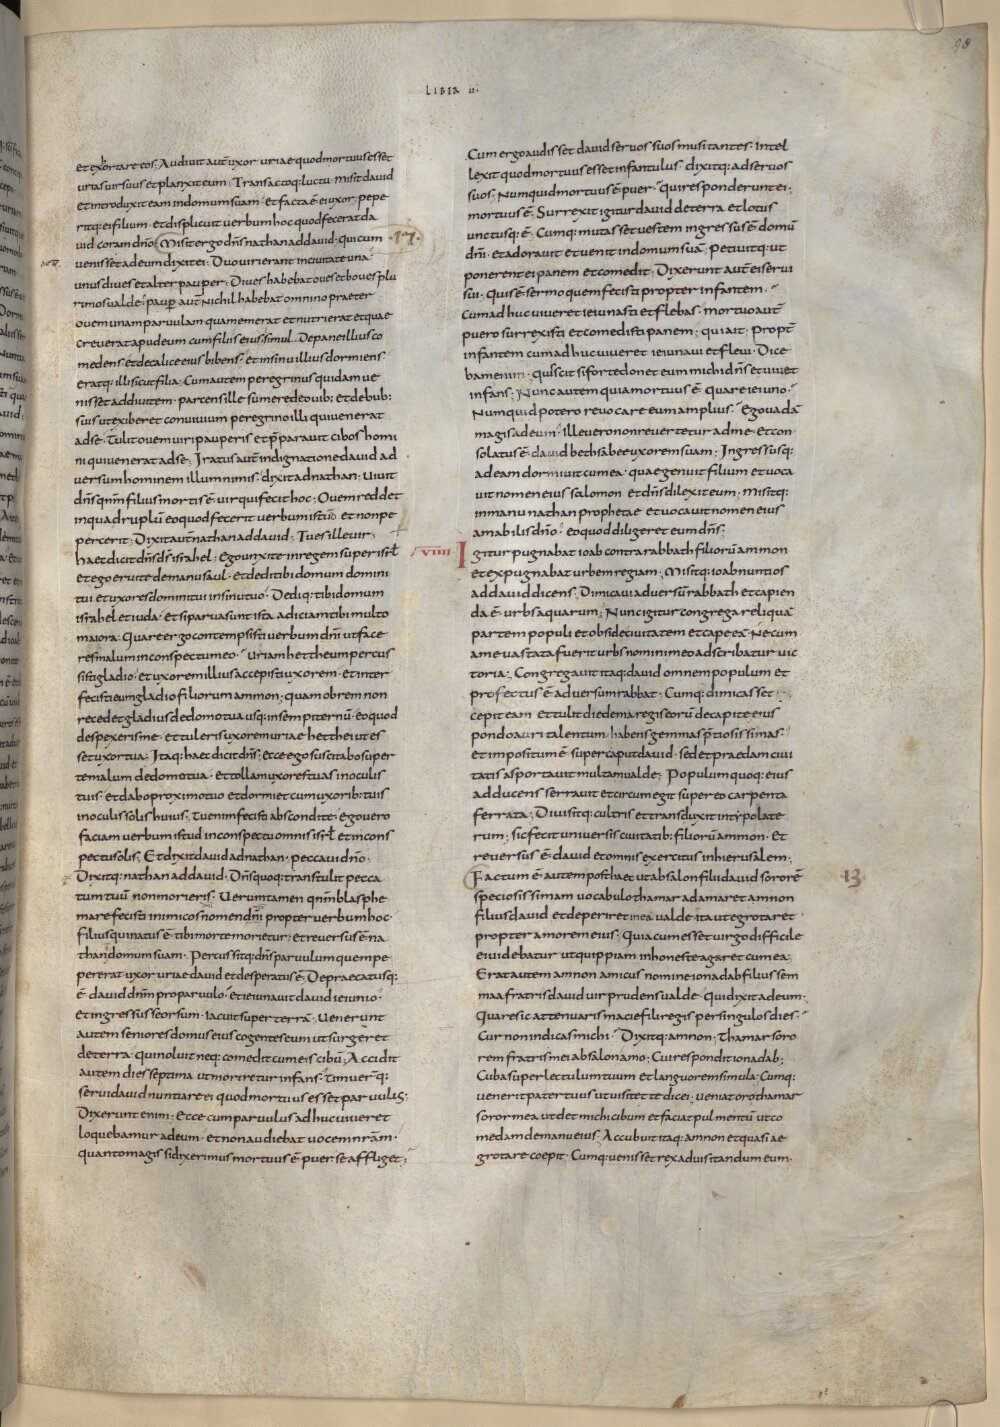 98
LIBER II·
et exhortare eos. Audivit autē uxor uriae quod mortuus esset
urias vir suus et planxit eum. Transactoq; luctu misit david
et introduxit eam in domum suam· et facta ē ei uxor· pepe
ritq; ei filium· et displicuit verbum hoc quod fecerat da
vid coram dño. Misit ergo dñs nathan ad david· qui cum
venisset ad eum dixit ei. Duo viri erant in civitate una·
unus dives et alter pauper; Dives habebat oves et boves plu
rimos valde; paup̄ autē nichil habebat omnino praeter
ovem unam parvulam quam emerat et nutrierat et quae
creverat apud eum cum filiis eius simul. De pane illius co
medens· et de calice eius bibens· et in sinu illius dormiens·
eratq; illi sicut filia; Cum autem peregrinus quidam ve
nisset ad divitem· parcens ille sumere de ovib; et de bub;
suis ut exiberet convivium peregrino illi qui venerat
ad se· Tulit ovem viri pauperis et p̄paravit cibos homi
ni qui venerat ad se; Iratus autē indignatione david ad
versum hominem illum nimis· dixit ad nathan; Vivit
dñs qnm̄ filius mortis ē vir qui fecit hoc; Ovem reddet
in quadruplū eo quod fecerit verbum istud et non pe
percerit; Dixit autē nathan ad david· Tu es ille vir;
haec dicit dñs ds israhel; Ego unxi te in regem super isrł
et ego erui te de manu saul· et dedi tibi domum domini
tui et uxores domini tui in sinu tuo· Dediq; tibi domum
israhel et iuda· et si parva sunt ista adiciam tibi multo
maiora· Quare ergo contempsisti verbum dñi ut face
res malum in conspectu meo; Uriam hettheum percus
sisti gladio· et uxorem illius accepisti uxorem· et inter
fecisti eum gladio filiorum ammon; quam obrem non
recedet gladius de domo tua usq; in sempiternū· eo quod
despexeris me· et tuleris uxorem uriae hetthei ut es
set uxor tua; Itaq; haec dicit dñs; ecce ego suscitabo super
te malum de domo tua· et tollam uxores tuas in oculis
tuis· et dabo proximo tuo et dormiet cum uxorib; tuis
in oculis solis huius; Tu enim fecisti abscondite; ego vero
faciam verbum istud in conspectu omnis isrł et in cons
pectu solis; Et dixit david ad nathan· peccavi dño;
Dixitq; nathan ad david; Dñs quoq; transtulit pecca
tum tuū non morieris; Verumtamen qnm̄ blasphe
mare fecisti inimicos nomen dñi propter verbum hoc·
filius qui natus ē tibi morte morietur; et reversus ē na
than domum suam; Percussitq; dñs parvulum quem pe
pererat uxor uriae david et desperatus ē; Depraecatusq;
ē david dñm pro parvulo· et ieiunavit david ieiunio·
Et ingressus seorsum· iacuit super terrā; Venerunt
autem seniores domus eius cogentes eum ut surgeret
de terra; qui noluit neq; comedit cum eis cibū; Accidit
autem die septima ut moriretur infans· timuer̄q;
servi david nuntiare ei quod mortuus esset parvulus;
Dixerunt enim; Ecce cum parvulus adhuc viveret
loquebamur ad eum· et non audiebat vocem nr̄am·
quanto magis si dixerimus mortuus ē puer se affliget;
17·
Cum ergo audisset david servos suos musitantes· intel
lexit quod mortuus esset infantulus· dixitq; ad servos
suos; Numquid mortuus ē puer; Qui responderunt ei;
mortuus ē; Surrexit igitur david de terra et lotus
unctusq; ē; Cumq; mutasset vestem ingressus ē domū
dñi· et adoravit et venit in domum suā; Petivitq; ut
ponerent ei panem et comedit; Dixerunt autē ei servi
sui; Quis ē sermo quem fecisti propter infantem·
Cum adhuc viveret ieiunasti et flebas· mortuo autē
puero surrexisti et comedisti panem; qui ait; Propt̄
infantem cum adhuc viveret ieiunavi et flevi· Dice
bam enim· quis scit si forte donet eum michi dñs et vivet
infans; Nunc autem quia mortuus ē quare ieiuno·
Numquid potero revocare eum amplius; Ego vadā
magis ad eum· ille vero non revertetur ad me; et con
solatus ē david bethsabee uxorem suam; Ingressusq;
ad eam dormivit cum ea· quae genuit filium et voca
vit nomen eius salomon et dñs dilexit eum· Misitq;
in manu nathan prophetae et vocavit nomen eius
amabilis dño· eo quod diligeret eum dñs;
VIIII
Igitur pugnabat ioab contra rabbath filiorū ammon
et expugnabat urbem regiam; Misitq; ioab nuntios
ad david dicens; Dimicavi adversū rabbath et capien
da ē urbs aquarum; Nunc igitur congrega reliquā
partem populi et obside civitatem et cape eā· Ne cum
a me vastata fuerit urbs nomini meo adscribatur vic
toria; Congregavit itaq; david omnem populum et
profectus ē adversum rabbat; Cumq; dimicasset
cepit eam et tulit diedema regis eorū de capite eius
pondo auri talentum· habens gemmas p̄tiosissimas·
et impositum ē super caput david· sed et praedam civi
tatis asportavit multam valde; Populum quoq; eius
adducens serravit et circumegit super eo carpenta
ferrata; Divisitq; cultris et transduxit in typo late
rum; sic fecit universis civitatib; filiorū ammon· Et
reversus ē david et omnis exercitus in hierusalem;
Factum ē autem post haec ut absalon filii david sororē
13
speciosissimam vocabulo thamar adamaret amnon
filius david et deperiret in ea valde· ita ut egrotaret
propter amorem eius; Quia cum esset virgo difficile
ei videbatur ut quippiam inhoneste ageret cum ea;
Erat autem amnon amicus nomine ionadab filius sem
maa fratris david vir prudens valde· Qui dixit ad eum·
Quare sic attenuaris macie fili regis per singulos dies·
Cur non indicas michi· Dixitq; amnon; Thamar soro
rem fratris mei absalon amo; Cui respondit ionadab;
Cuba super lectulum tuum et languorem simula; Cumq;
venerit pater tuus ut visitet te dic ei; veniat oro thamar
soror mea ut det michi cibum et faciat pulmentū ut co
medam de manu eius; Accubuit itaq; amnon et quasi ae
grotare coepit; Cumq; venisset rex ad visitandum eum·